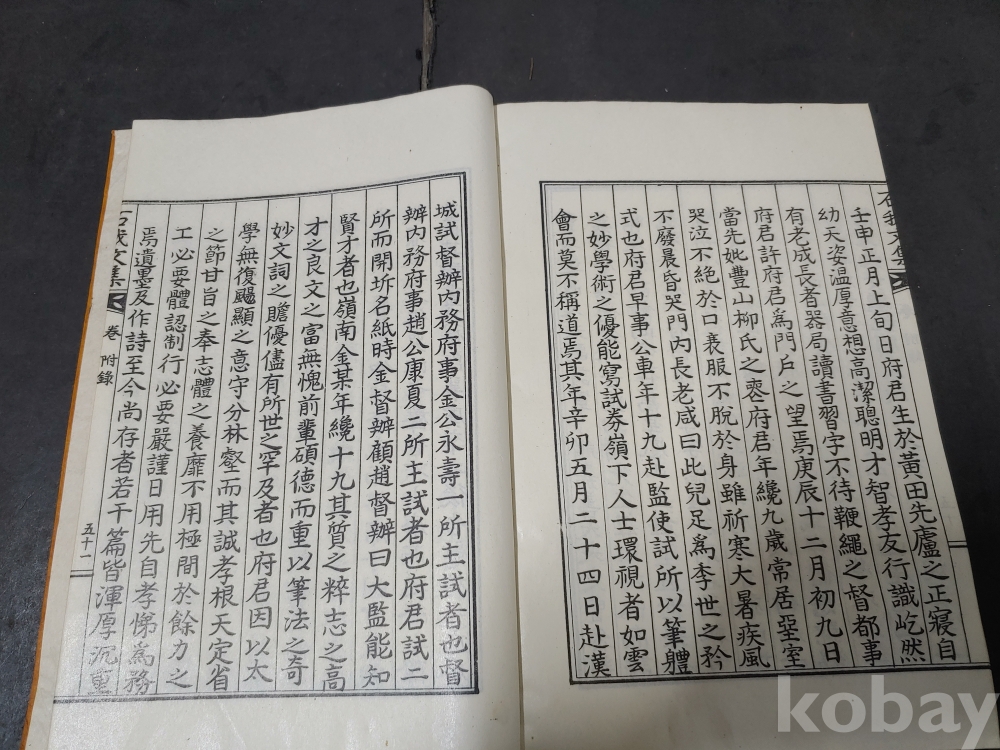 壬申正月上旬日府君生於黃田先廬之正寢自
幼天姿溫厚意想高潔聰明才智孝友行識屹然
有老成長者器局讀書習字不待鞭繩之督都事
府君許府君爲門戶之望焉庚辰十二月初九日
當先妣豊山柳氏之喪府君年纔九歲常居堊室
哭泣不絕於口衰服不脫於身雖祈寒大暑疾風
不廢晨昏哭門內長老咸曰此兒足爲李世之矜
式也府君早事公車年十九赴監使試所以筆體
之妙學術之優能寫試券嶺下人士環視者如雲
會而莫不稱道焉其年辛卯五月二十四日赴漢
城試督辦內務府事金公永壽一所主試者也督
辦內務府事趙公康夏二所主試者也府君試二
所而開坼名紙時金督辦顧趙督辦曰大監能知
賢才者也嶺南金某年纔十九其質之粹志之高
才之良文之富無愧前輩碩德而重以筆法之奇
妙文詞之贍優儘有所世之罕及者也府君因以太
學無復颺顯之意守分林壑而其誠孝根天定省
之節甘旨之奉志體之養靡不用極間於餘力之
工必要體認制行必要嚴謹日用先自孝悌爲務
焉遺墨及作詩至今尚存者若干篇皆渾厚沉重
文集
卷 附錄
五十一
kobay